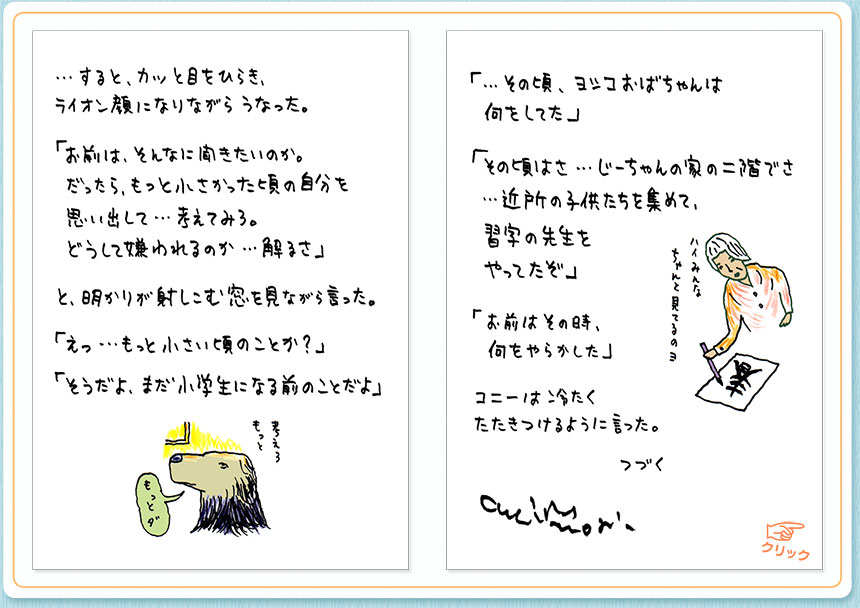 …すると、カッと目をひらき、
ライオン顔になりながら うなった。
「お前は、そんなに聞きたいのか。
だったら、もっと小さかった頃の自分を
思い出して…考えてみろ。
どうして嫌われるのか…解るさ」
と、明かりが射しこむ窓を見ながら言った。
「えっ…もっと小さい頃のことか？」
「そうだよ、まだ小学生になる前のことだよ」
考えろ
もっと
もっとダ
「…その頃、ヨシコおばちゃんは
何をしてた」
「その頃はさ…じーちゃんの家の二階でさ
…近所の子供たちを集めて、
習字の先生を
やってたぞ」
ハイみんな
ちゃんと見てるのヨ
「お前はその時、
何をやらかした」
コニーは冷たく
たたきつけるように言った。
つづく
クリック